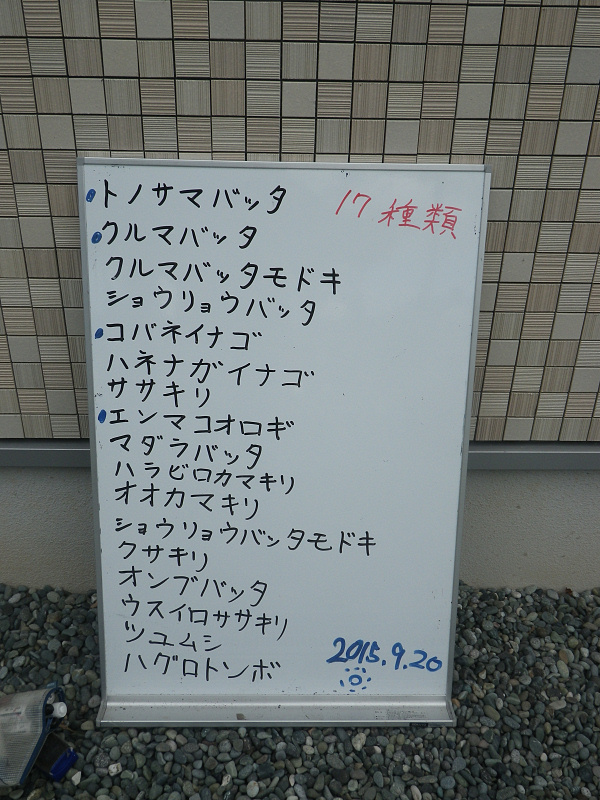 トノサマバッタ
17種類
クルマバッタ
クルマバッタモドキ
ショウリョウバッタ
コバネイナゴ
ハネナガイナゴ
ササキリ
エンマコオロギ
マダラバッタ
ハラビロカマキリ
オオカマキリ
ショウリョウバッタモドキ
クサキリ
オンブバッタ
ウスイロササキリ
ツユムシ
ハグロトンボ
2015.9.20